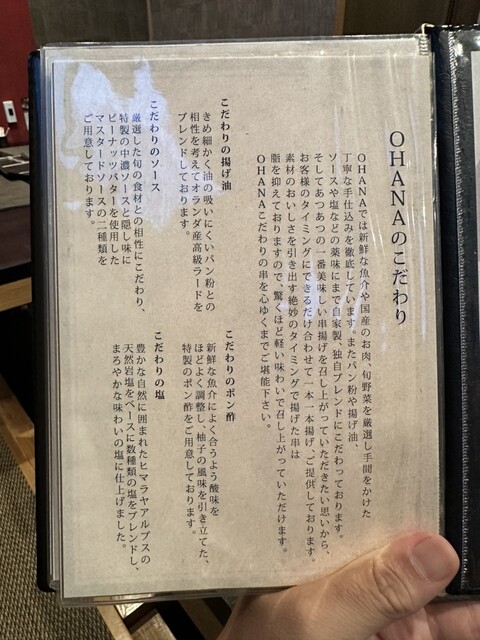 OHANAのこだわり
OHANAでは新鮮な魚介や国産のお肉、旬野菜を厳選し手間をかけた
丁寧な手仕込みを徹底しています。またパン粉や揚げ油、
ソースや塩などの薬味にまで自家製、独自ブレンドにこだわっております。
そしてあつあつの一番美味しい串揚げを召し上がっていただきたい思いから、
お客様のタイミングにできるだけ合わせて一本一本揚げ、ご提供しております。
素材のおいしさを引き出す絶妙のタイミングで揚げた串は
脂を抑えておりますので、驚くほど軽い味わいで召し上がっていただけます。
OHANAこだわりの串を心ゆくまでご堪能下さい。
こだわりの揚げ油
きめ細かく油の吸いにくいパン粉との
相性を考えてオランダ産高級ラードを
ブレンドしております。
こだわりのソース
厳選した旬の食材との相性にこだわり、
特製の中濃ソースと隠し味に
ピーナッツバターを使用した
マスタードソースの二種類を
ご用意しております。
こだわりのポン酢
新鮮な魚介によく合うよう酸味を
ほどよく調整し、柚子の風味を引き立てた、
特製のポン酢をご用意しております。
こだわりの塩
豊かな自然に囲まれたヒマラヤアルプスの
天然岩塩をベースに数種類の塩をブレンドし、
まろやかな味わいの塩に仕上げました。